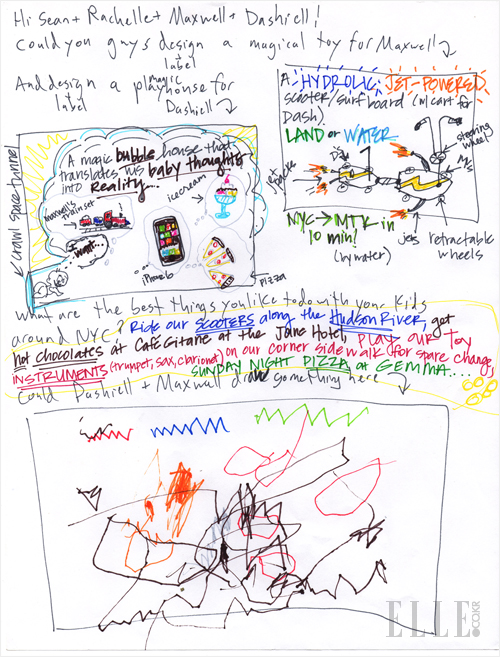 Hi Sean + Rachelle + Maxwell + Dashiell!
Could you guys design a magical toy for Maxwell
label
And design a playhouse for
magic
label
Dashiell
A HYDROLIC, JET-POWERED
scooter/surf board (w/ cart for
Dash).
LAND or WATER
steering
wheel
jet
packs
D's
M's
NYC → MTK in
10 min!
(by water)
jets
retractable
wheels
crawl space tunnel
A magic bubble house that
translates his baby thoughts
into REALITY...
maxwell's
train set
ice cream
I want...
iPhone 6
pizza
What are the best things you like to do with your kids
around NYC? Ride our SCOOTERS along the Hudson River, get
hot chocolates at Café Gitane at the Jane Hotel, PLAY our Toy
INSTRUMENTS (trumpet, sax, clarionet) on our corner sidewalk for spare change,
SUNDAY NIGHT PIZZA at GEMMA....
Could Dashiell + Maxwell draw something here
ELLE.co.kr